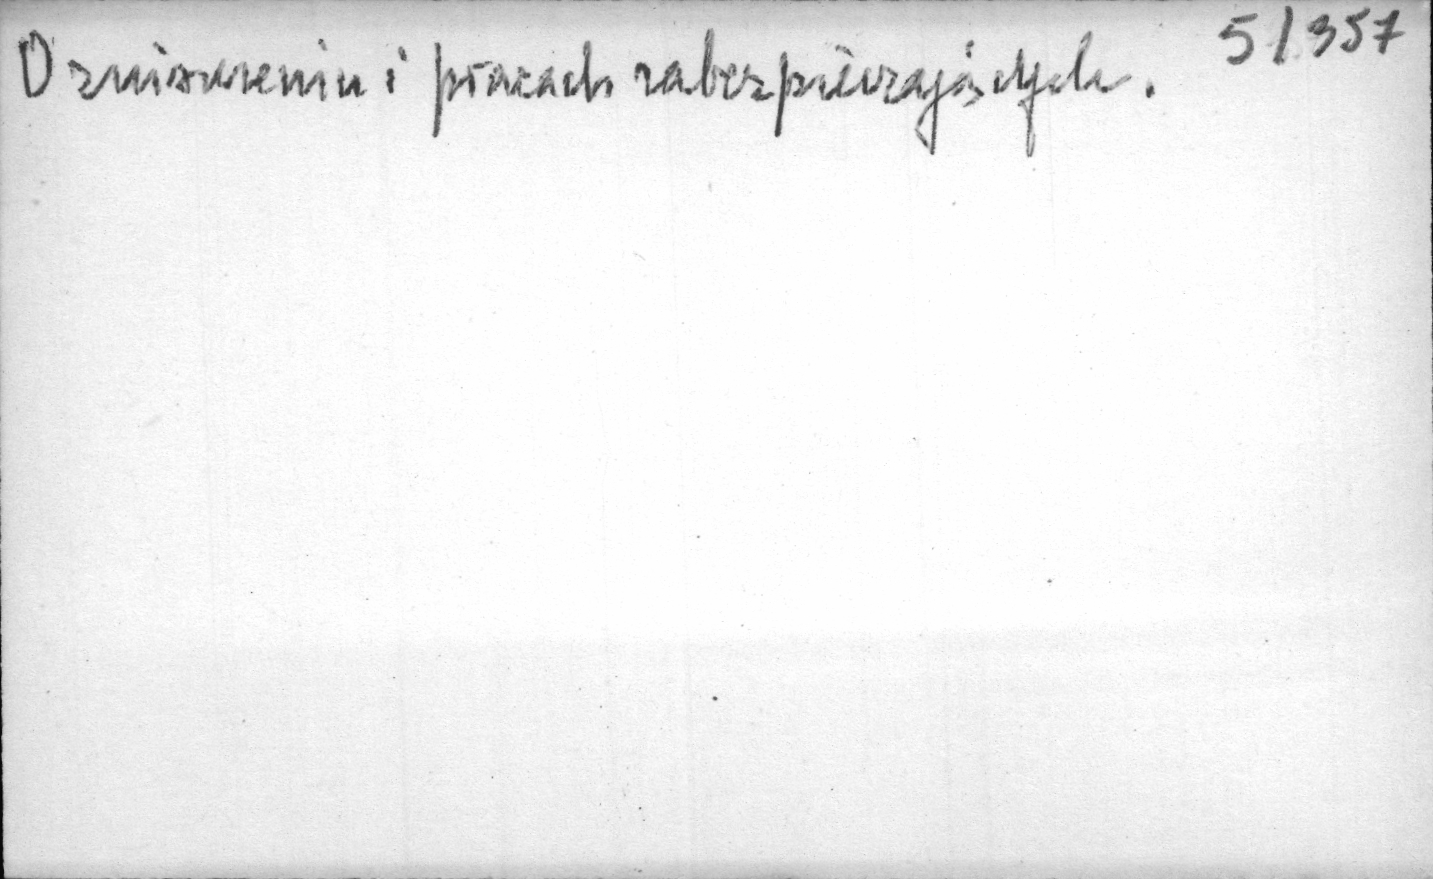 O zniszczeniu i pracach zabezpieczających. 5/357